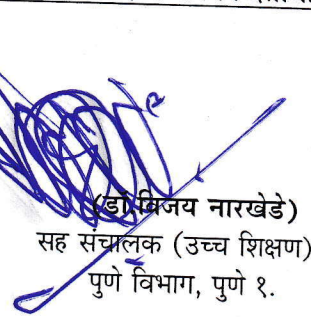 (डॉ.विजय नारखेडे)
सह संचालक (उच्च शिक्षण)
पुणे विभाग, पुणे १.